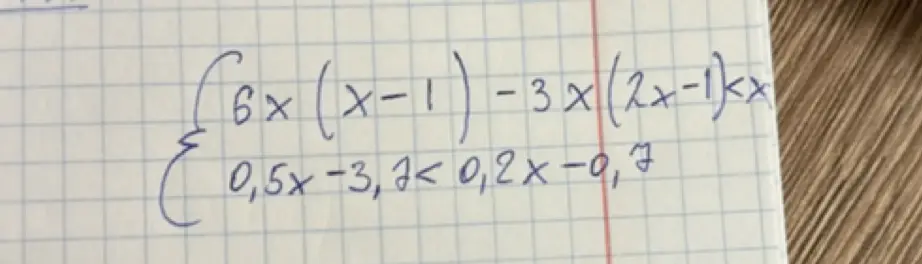 6x(x-1)-3x(2x-1)<x
0,5x-3,7<0,2x-0,7